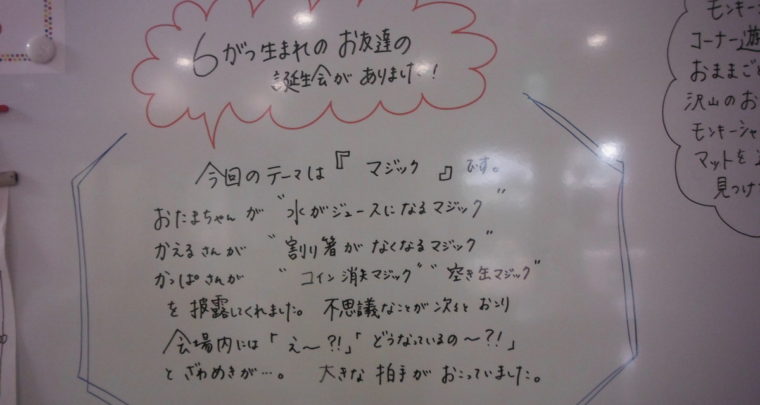 6がつ生まれの お友達の
誕生会が ありました!
今回のテーマは『 マジック 』です。
おたまちゃんが "水がジュースになるマジック"
かえるさんが "割り箸がなくなるマジック"
かっぱさんが "コイン消失マジック" "空き缶マジック"
を 披露してくれました。 不思議なことが次々と おこり
会場内には「え〜?!」「どうなっているの〜?!」
と ざわめきが…。 大きな 拍手が おこっていました。
モンキー
コーナー遊
おままご
沢山のお
モンキーシャ
マットを
見つけ